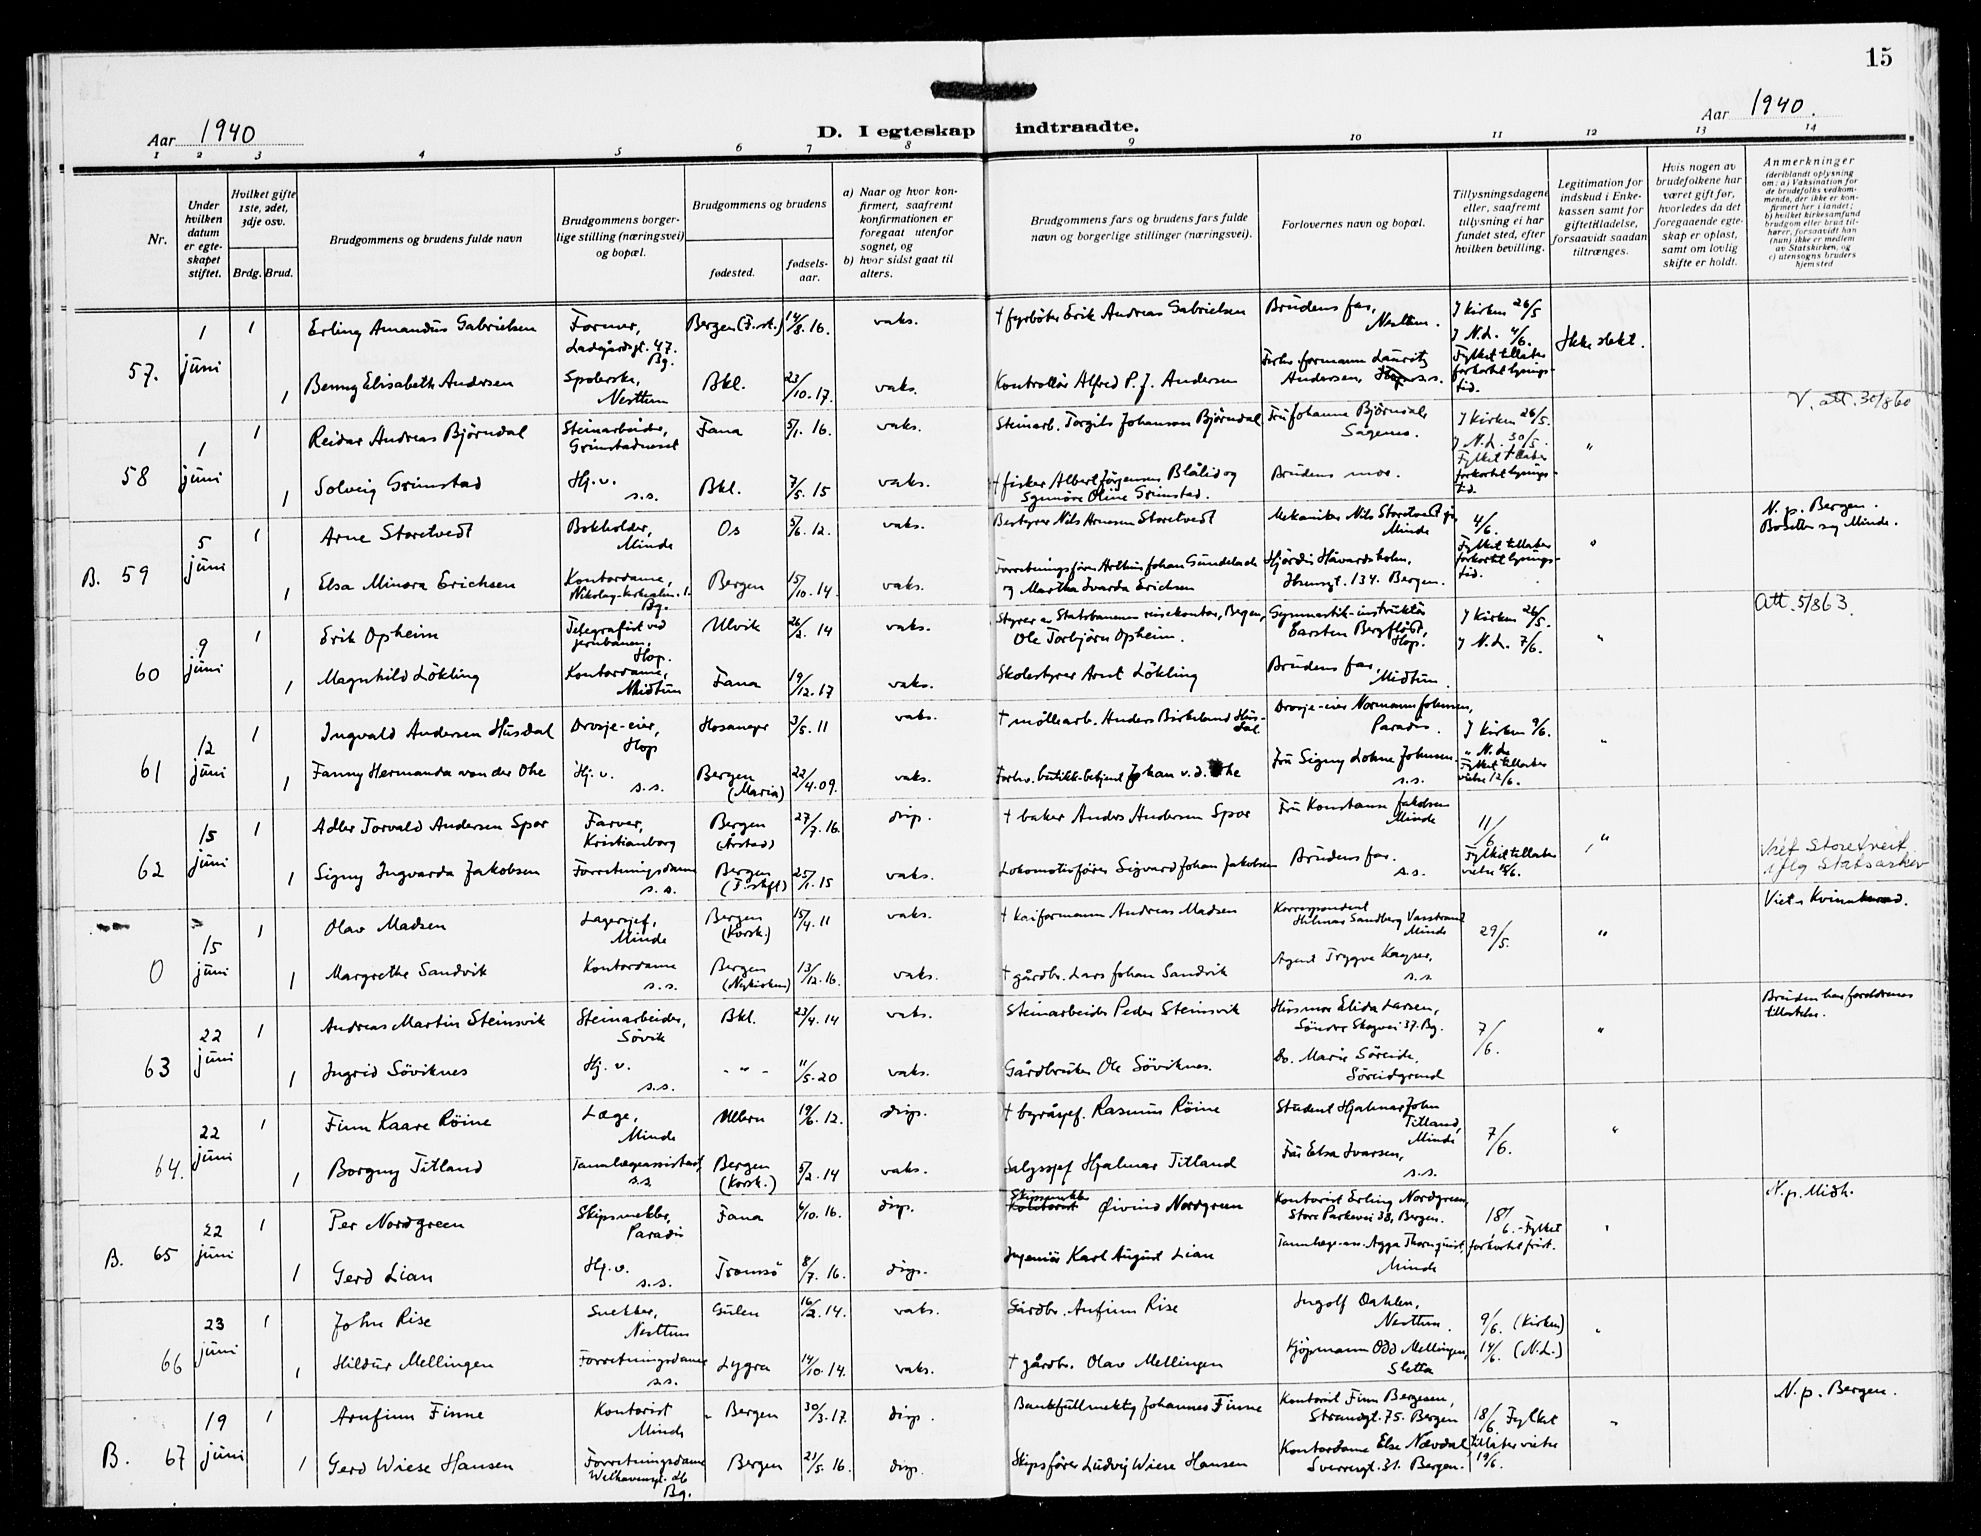 15
Aar 1940
D. I egteskap indtraadte.
Aar 1940.
1 2 3 4 5 6 7 8 9 10 11 12 13 14
Nr.
Under hvilken datum er egteskapet stiftet.
Hvilket gifte 1ste, 2det, 3dje osv.
Brdg. Brud.
Brudgommens og brudens fulde navn
Brudgommens borgerlige stilling (næringsvei) og bopæl.
Brudgommens og brudens
fødested.
fødselsaar.
a) Naar og hvor konfirmert, saafremt konfirmationen er foregaat utenfor sognet, og
b) hvor sidst gaat til alters.
Brudgommens fars og brudens fars fulde navn og borgerlige stillinger (næringsvei).
Forlovernes navn og bopæl.
Tillysningsdagene eller, saafremt tillysning ei har fundet sted, efter hvilken bevilling.
Legitimation for indskud i Enkekassen samt for giftetilladelse, forsaavidt saadan tiltrænges.
Hvis nogen av brudefolkene har været gift før, hvorledes da det foregaaende egteskap er opløst, samt om lovlig skifte er holdt.
Anmerkninger (deriblandt oplysning om: a) Vaksination for de brudefolks vedkommende, der ikke er konfirmert her i landet; b) hvilket kirkesamfund brudgom eller brud tilhører, forsaavidt han (hun) ikke er medlem av Statskirken, og c) utensogns bruders hjemsted
57. 1 juni
1 Erling Amandus Gabrielsen Former, Ladegårdsgt. 47. Bg. Bergen (F.st.) 14/8.16. vaks. † fyrbøter Erik Andreas Gabrielsen Brudens far, Nesttun. J kirken 26/5 J N.d. 4/6. Ikke slekt.
1 Benny Elisabeth Andersen Spolerske, Nesttun Bkl. 23/10.17. vaks. Kontrollör Alfred P. J. Andersen Forhv. formann Lauritz Andersen, s.s. Fylket tillater forkortet lysningstid.
58 1 juni
1 Reidar Andreas Bjørndal Steinarbeider, Grimstadneset Fana 5/1.16. vaks. Steinarb. Torgils Johanson Bjørndal Fru Johanna Bjørndal, Sagenes. J Kirken 26/5. J N.d. 30/5. " V. att. 30/8 60
1 Solveig Grimstad Hj.v. s.s. Bkl. 7/5.15 vaks. † fisker Albert Jörgensen Blålid og Synnöve Oline Grimstad. Brudens mor. Fylket tillater forkortet lysningstid.
B. 59 5 juni
1 Arne Storetvedt Bokholder, Minde Os 5/6.12. vaks. Bestyrer Nils Arnesen Storetvedt Mekaniker Nils Storetvedt jr, Minde 4/6. " N.p. Bergen. Bosetter seg Minde.
1 Elsa Minora Erichsen Kontordame, Nikolay-kirkealm. 1. Bg. Bergen 15/10.14. vaks. Forretningsfører Arthur Johan Gundelach og Martha Ivarda Erichsen Hjördis Håvardsholm, Ibsensgt. 134. Bergen. Fylket tillater forkortet lysningstid.
60 9 juni
1 Erik Opheim Telegrafist ved jernbanen, Hop. Ulvik 26/2.14 vaks. Styrer av Statsbanenes reisekontor, Bergen, Ole Torbjörn Opheim. Gymnastik-instruktör Carsten Bergflödt, Hop. J Kirken 26/5. J N.d. 7/6. " Att. 5/8 63.
1 Magnhild Lökling Kontordame, Midtun Fana 19/12.17 vaks. Skolestyrer Arnt Lökling Brudens far, Midtun.
61 12 juni
1 Ingvald Andersen Husdal Drosje-eier, Hop Hosanger 3/5.11 vaks. † möllearb. Anders Birkeland Husdal. Drosje-eier Normann Johnsen, Paradis. J Kirken 9/6. "
1 Fanny Hermanda van der Ohe Hj.v. s.s. Bergen (Maria) 22/4.09. vaks. Forhv. butikk-betjent Johan v.d. Ohe Fru Signy Lohne Johnsen s.s. " N.d. Fylket tillater vielse 12/6.
62 15 juni
1 Adler Torvald Andersen Spor Farver, Kristianborg Bergen (Årstad) 27/7.16. disp. † baker Anders Andersen Spor Fru Konstanse Jakobsen Minde 11/6 " Viet Storetveit iflg Statsarkiv
1 Signy Ingvarda Jakobsen Forretningsdame s.s. Bergen (F.skft) 25/1.15 vaks. Lokomotivförer Sigvard Johan Jakobsen Brudens far. s.s. Fylket tillater vielse 15/6.
0 15 juni
1 Olav Madsen Lagersjef, Minde Bergen (Korsk.) 15/4.11 vaks. † kaiformann Andreas Madsen Korrespondent Hilmar Sandberg Vasstrand Minde 29/5. "
1 Margrethe Sandvik Kontordame s.s. Bergen (Nykirken) 13/12.16. vaks. † gårdbr. Lars Johan Sandvik Agent Trygve Kayser, s.s.
63 22 juni
1 Andreas Martin Steinsvik Steinarbeider, Søvik Bkl. 23/4.14 vaks. Steinarbeider Peder Steinsvik Husmor Elida Larsen, Söndre Skogvei 37. Bg. 7/6. " Bruden har foreldrenes tillatelse.
1 Ingrid Söviknes Hj.v. s.s. - " - 11/5.20 vaks. Gårdbruker Ole Söviknes. Do. Marie Söreide, Söreidgrend
64. 22 juni
1 Finn Kaare Röine Læge, Minde Ullern 19/6.12. disp. † byråsjef. Rasmus Röine Student Hjalmar John Titland, Minde 7/6. "
1 Borgny Titland Tannlegeassistent s.s. Bergen (Korsk.) 5/2.14 vaks. Salgssjef Hjalmar Titland Fru Elsa Ivarsen, s.s.
B. 65 22 juni
1 Per Nordgreen Skipsmekler, Paradis Fana 6/10.16. disp. Skipsmekler Øivind Nordgreen Kontorist Erling Nordgreen, Store Parkevei 38, Bergen. 18/6. - Fylket forkortet frist. N.p. Midh.
1 Gerd Lian Hj.v. s.s. Tromsö 8/7.16. disp. Ingeniör Karl August Lian Tannlege-ass. Agga Thornquist, Minde
66 23 juni
1 John Rise Snekker, Nesttun Gulen 16/2.14. vaks. Gårdbr. Anfinn Rise Ingolf Dahlen, Nesttun. 9/6. (Kirken) "
1 Hildur Mellingen Forretningsdame s.s. Lygra 14/10.14. vaks. † gårdbr. Olav Mellingen Kjöpmann Odd Mellingen, Sletta 14/6. (N.d.)
B. 67 19 juni
1 Arnfinn Finne Kontorist Minde Bergen 30/3.17. disp. Bankfullmektig Johannes Finne Kontorist Finn Bergesen, Strandgt. 75. Bergen 18/6 Fylket " N.p. Bergen.
1 Gerd Wiese Hansen Forretningsdame Welhavensgt. Bg. Bergen 21/5.16. disp. Skipsförer Ludvig Wiese Hansen Kontordame Else Nævdal Sverresgt. 31. Bergen. tillater vielse 19/6.